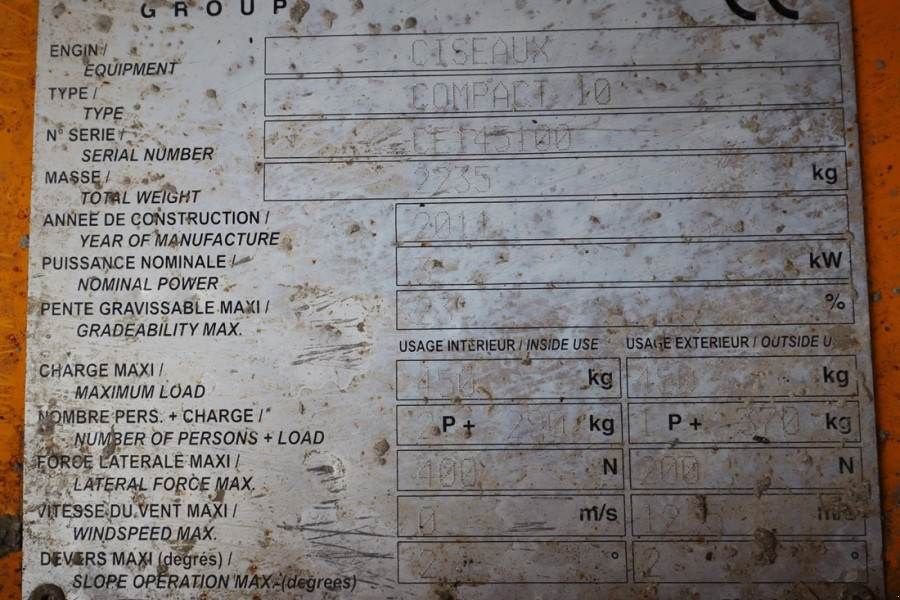 GROUP CE
ENGIN / CISEAUX
EQUIPMENT
TYPE / COMPACT 10
TYPE
N° SERIE / CE145100
SERIAL NUMBER
MASSE / 2235 kg
TOTAL WEIGHT
ANNEE DE CONSTRUCTION / 2011
YEAR OF MANUFACTURE
PUISSANCE NOMINALE / kW
NOMINAL POWER
PENTE GRAVISSABLE MAXI / %
GRADEABILITY MAX.
USAGE INTERIEUR / INSIDE USE USAGE EXTERIEUR / OUTSIDE U
CHARGE MAXI / 450 kg kg
MAXIMUM LOAD
NOMBRE PERS. + CHARGE / P + kg 1 P + 370 kg
NUMBER OF PERSONS + LOAD
FORCE LATERALE MAXI / 400 N 200 N
LATERAL FORCE MAX.
VITESSE DU VENT MAXI / 0 m/s 12 m/s
WINDSPEED MAX.
DEVERS MAXI (degrés) / 2 ° 2 °
SLOPE OPERATION MAX. (degrees)